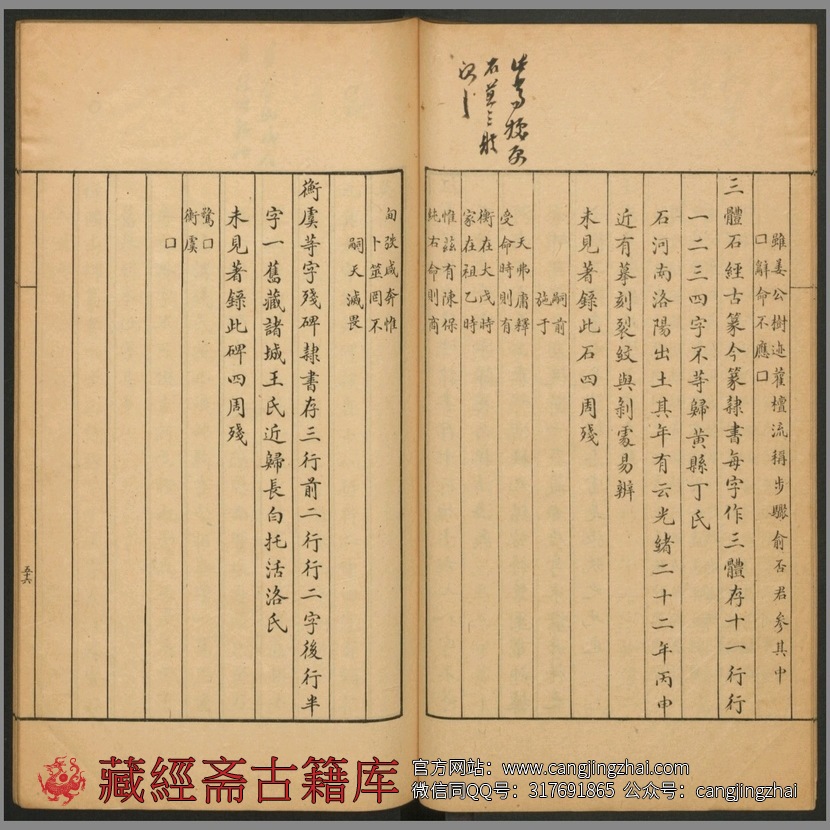 雖姜公樹迹藿檀流稱步驟俞否君參其中
口辭命不應口
三體石經古篆今篆隸書每字作三體存十一行行
一二三四字不等歸黃縣丁氏
石河南洛陽出土其年有云光緒二十二年丙申
近有摹刻裂紋與剝處易辨
未見著錄此石四周殘
嗣前
于
天弗庸釋
受命時則有
衡在大戊時
家在祖乙時
惟茲有陳保
純右命則商
旬弢咸奔惟
卜筮罔不
嗣天滅畏
衡虞等字殘碑隸書存三行前二行行二字後行半
字一舊藏諸城王氏近歸長白托活洛氏
未見著錄此碑四周殘
鷩口
衡虞
口
五十六
藏經斋古籍库
官方网站：www.cangjingzhai.com
微信同QQ号：317691865 公众号：cangjingzhai